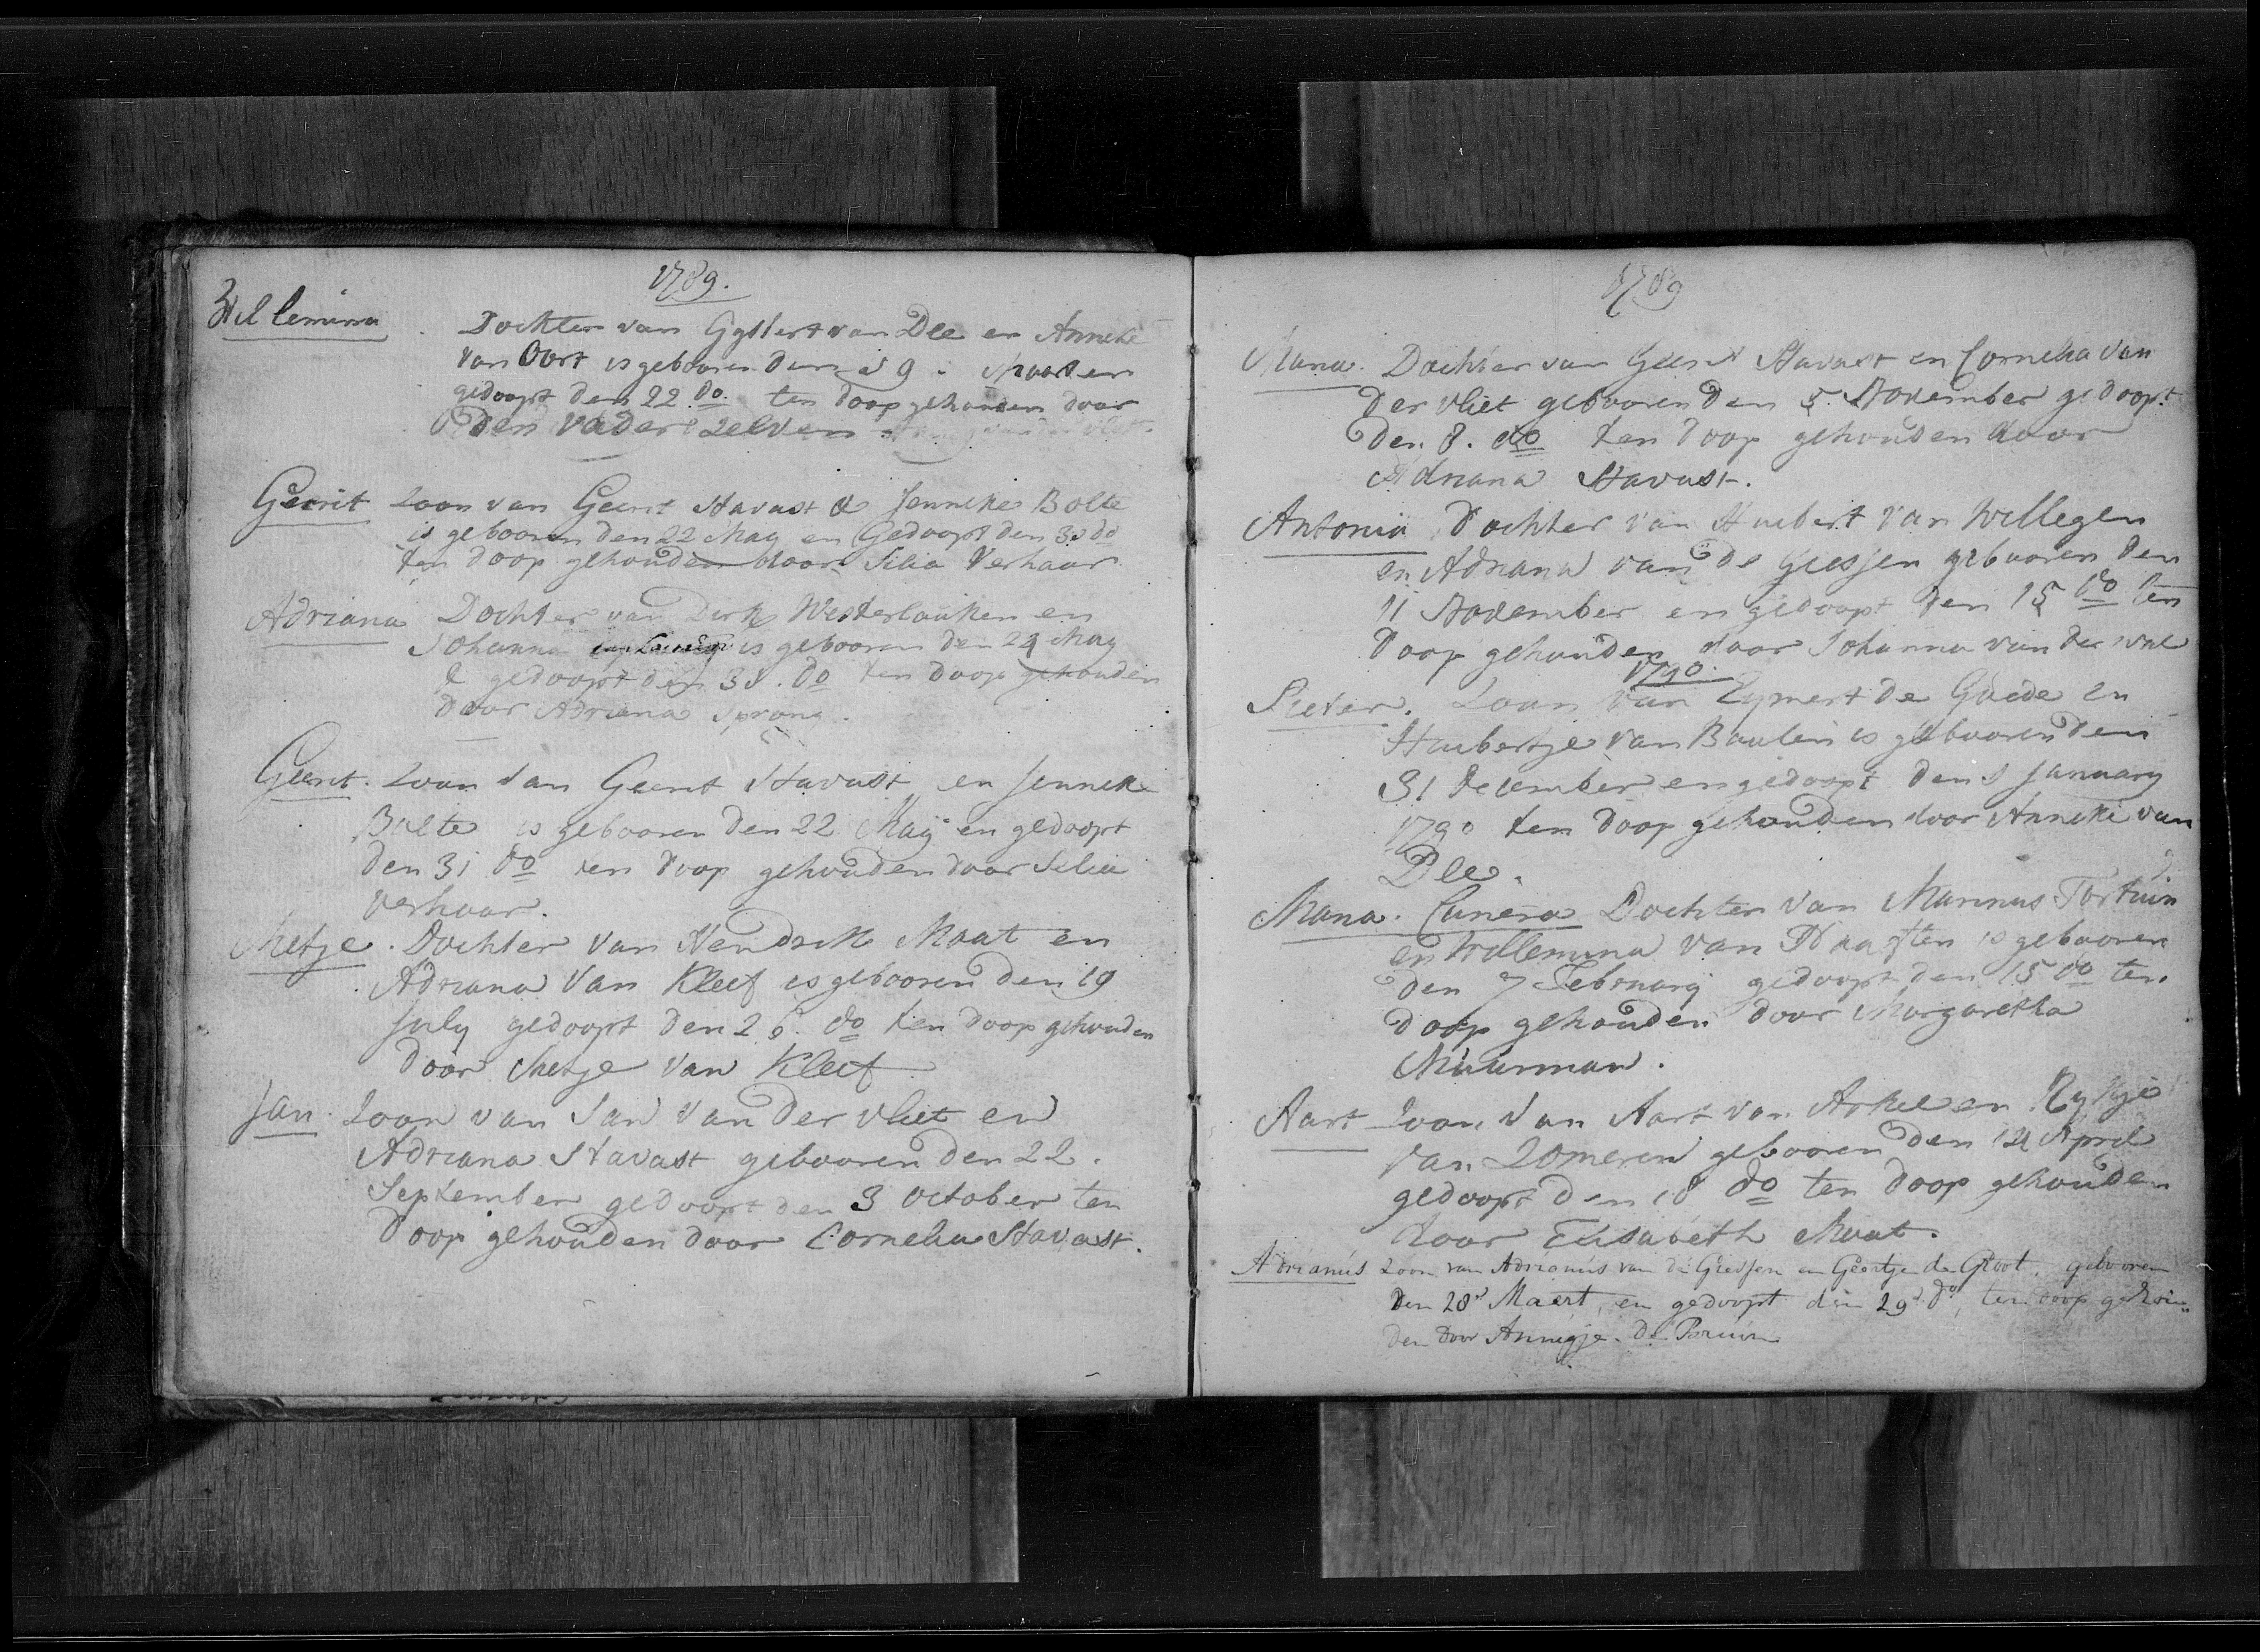 1789.
Willemina
Dochter van Gysbert van Dle en Anneke
van Oort is gebooren den 19. Maart en
gedoopt den 22 do. ten doop gehouden door
den vader zelven
Gerrit Zoon van Geerit Stavast & Jenneke Bolte
is gebooren den 22 May en Gedoopt den 30 do
ten doop gehouden door Silia Verhaar
Adriana Dochter van Dirk Westerlauken en
Johanna is gebooren den 24 May
& gedoopt den 31. do ten doop gehouden
door Adriana Sprong.
Geerit. Zoon van Geerit Stavast en Jenneke
Bolte is gebooren den 22 Maÿ en gedoopt
den 31 do ten doop gehouden door Silia
verhaar.
Metje. Dochter van Hendrik Maat en
Adriana Van Kleef is gebooren den 19
July gedoopt den 26. do ten doop gehouden
door Metje Van Kleef
Jan. Zoon van Jan Van der vliet en
Adriana Stavast gebooren den 22.
September gedoopt den 3 october ten
doop gehouden door Cornelia Stavast.
1789
Maria. Dochter van Geerit Stavast en Cornelia van
der vliet gebooren den 5. November gedoopt
den 8. do ten doop gehouden door
Adriana Stavast.
Antonia Dochter van Huibert van Willegen
en Adriana van de Giessen gebooren den
11 November en gedoopt den 15 do ten
doop gehouden door Johanna van der wal
1790.
Pieter. Zoon van Zymert de Goede en
Huibertje van Baulen is gebooren den
31 December en gedoopt den 1 January
1790 ten doop gehouden door Anneke van
Dle.
Maria. Cunera Dochter van Marinus Fortuin
en Willemina van Haaften is gebooren
den 7 February gedoopt den 15 do ten
doop gehouden door Margaretha
Muurman.
Aart Zoon van Aart van Arkel en Rykje
van Zomeren gebooren den 14 April
gedoopt den 18 do ten doop gehouden
door Elisabeth Maat.
Adrianus Zoon van Adrianus van de Giessen en Geertje de Groot, gebooren
den 28d Maert, en gedoopt den 29d do, ten doop gehou=
den door Annigje de Bruin